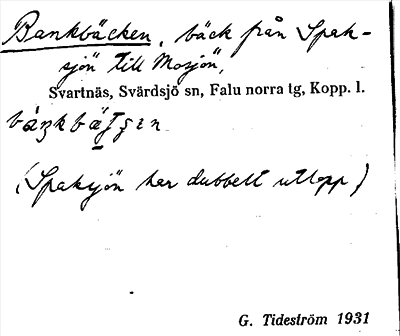 Bankbäcken, bäck från Spak-
sjön till Mosjön,
Svartnäs, Svärdsjö sn, Falu norra tg, Kopp. l.
(Spaksjön har dubbelt utlopp)
G. Tideström 1931